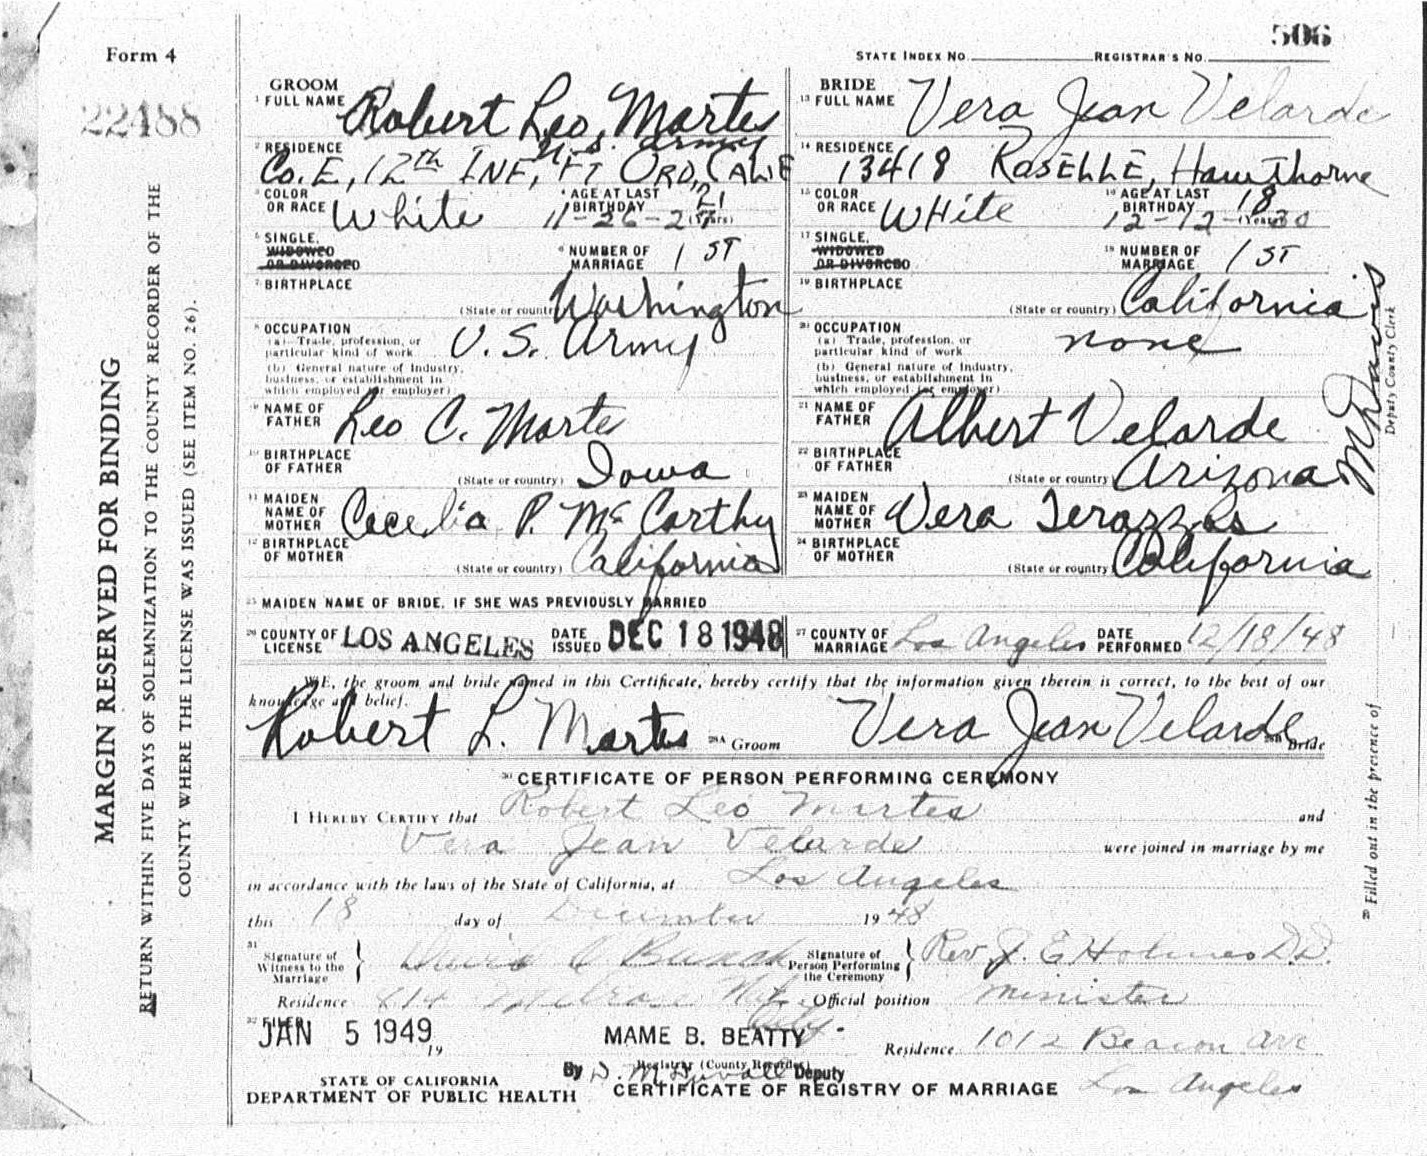 506
Form 4
STATE INDEX NO. REGISTRAR'S NO.
22488
GROOM
1 FULL NAME Robert Leo, Martes
2 RESIDENCE U.S. Army
Co. E, 12th INF, FT ORD, CALIF
3 COLOR OR RACE White
4 AGE AT LAST BIRTHDAY 21 (Years)
11-26-27
5 SINGLE, WIDOWED OR DIVORCED
6 NUMBER OF MARRIAGE 1ST
7 BIRTHPLACE (State or country) Washington
8 OCCUPATION
(a) Trade, profession, or particular kind of work U.S. Army
(b) General nature of Industry, business, or establishment in which employed (or employer)
9 NAME OF FATHER Leo C. Marte
10 BIRTHPLACE OF FATHER (State or country) Iowa
11 MAIDEN NAME OF MOTHER Cecelia P. McCarthy
12 BIRTHPLACE OF MOTHER (State or country) California
BRIDE
13 FULL NAME Vera Jean Velarde
14 RESIDENCE
13418 RASELLE, Hawthorne
15 COLOR OR RACE WHite
16 AGE AT LAST BIRTHDAY 18 (Years)
12-12-30
17 SINGLE, WIDOWED OR DIVORCED
18 NUMBER OF MARRIAGE 1ST
19 BIRTHPLACE (State or country) California
20 OCCUPATION
(a) Trade, profession, or particular kind of work none
(b) General nature of Industry, business, or establishment in which employed (or employer)
21 NAME OF FATHER Albert Velarde
22 BIRTHPLACE OF FATHER (State or country) Arizona
23 MAIDEN NAME OF MOTHER Vera Terazzas
24 BIRTHPLACE OF MOTHER (State or country) California
25 MAIDEN NAME OF BRIDE, IF SHE WAS PREVIOUSLY MARRIED
26 COUNTY OF LICENSE LOS ANGELES DATE ISSUED DEC 18 1948
27 COUNTY OF MARRIAGE Los Angeles DATE PERFORMED 12/18/48
WE, the groom and bride named in this Certificate, hereby certify that the information given therein is correct, to the best of our
knowledge and belief.
Robert L. Martes 28A Groom Vera Jean Velarde 28B Bride
30 CERTIFICATE OF PERSON PERFORMING CEREMONY
I HEREBY CERTIFY that Robert Leo Martes and
Vera Jean Velarde were joined in marriage by me
in accordance with the laws of the State of California, at Los Angeles
this 18 day of December 1948
31 Signature of Witness to the Marriage David
Signature of Person Performing the Ceremony Rev. J. E. Holmes D.D.
Residence 614 City
Official position Minister
32 FILED
JAN 5 1949, 19
MAME B. BEATTY
Registrar (County Recorder)
Residence 1012 Beacon Ave
Los Angeles
By D. McDuvall Deputy
STATE OF CALIFORNIA
DEPARTMENT OF PUBLIC HEALTH
CERTIFICATE OF REGISTRY OF MARRIAGE
MARGIN RESERVED FOR BINDING
RETURN WITHIN FIVE DAYS OF SOLEMNIZATION TO THE COUNTY RECORDER OF THE
COUNTY WHERE THE LICENSE WAS ISSUED (SEE ITEM NO. 26).
29 Filled out in the presence of
M Davis
Deputy County Clerk